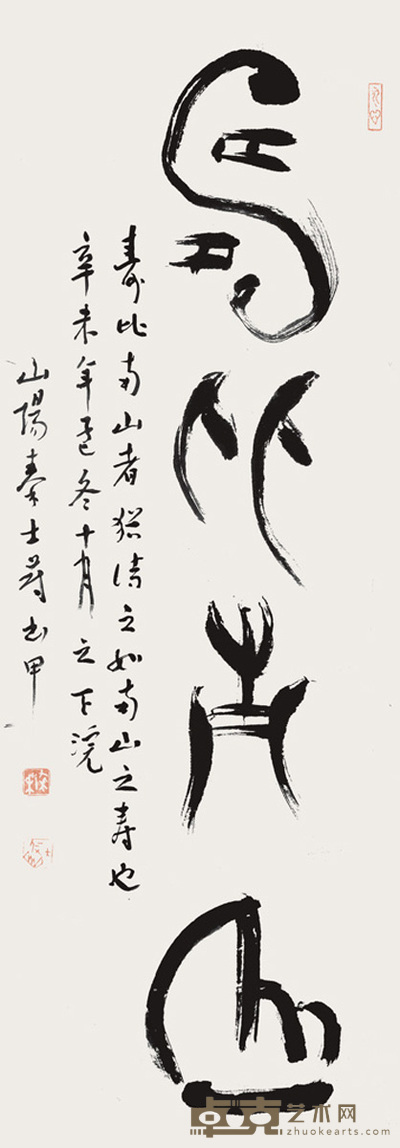 壽比南山
壽比南山者犹诗之如南山之壽也
辛未年之冬十月之下浣
山陽秦士蔚书甲
卓克艺术网
zhuokearts.com